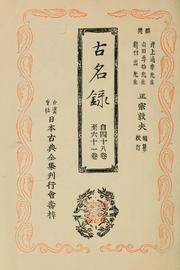 顧問
井上通泰先生
山田孝雄先生
新村出先生
正宗敦夫
編纂
校訂
古名錄
自四十八卷
至六十一卷
合資
會社
日本古典全集刊行會壽梓